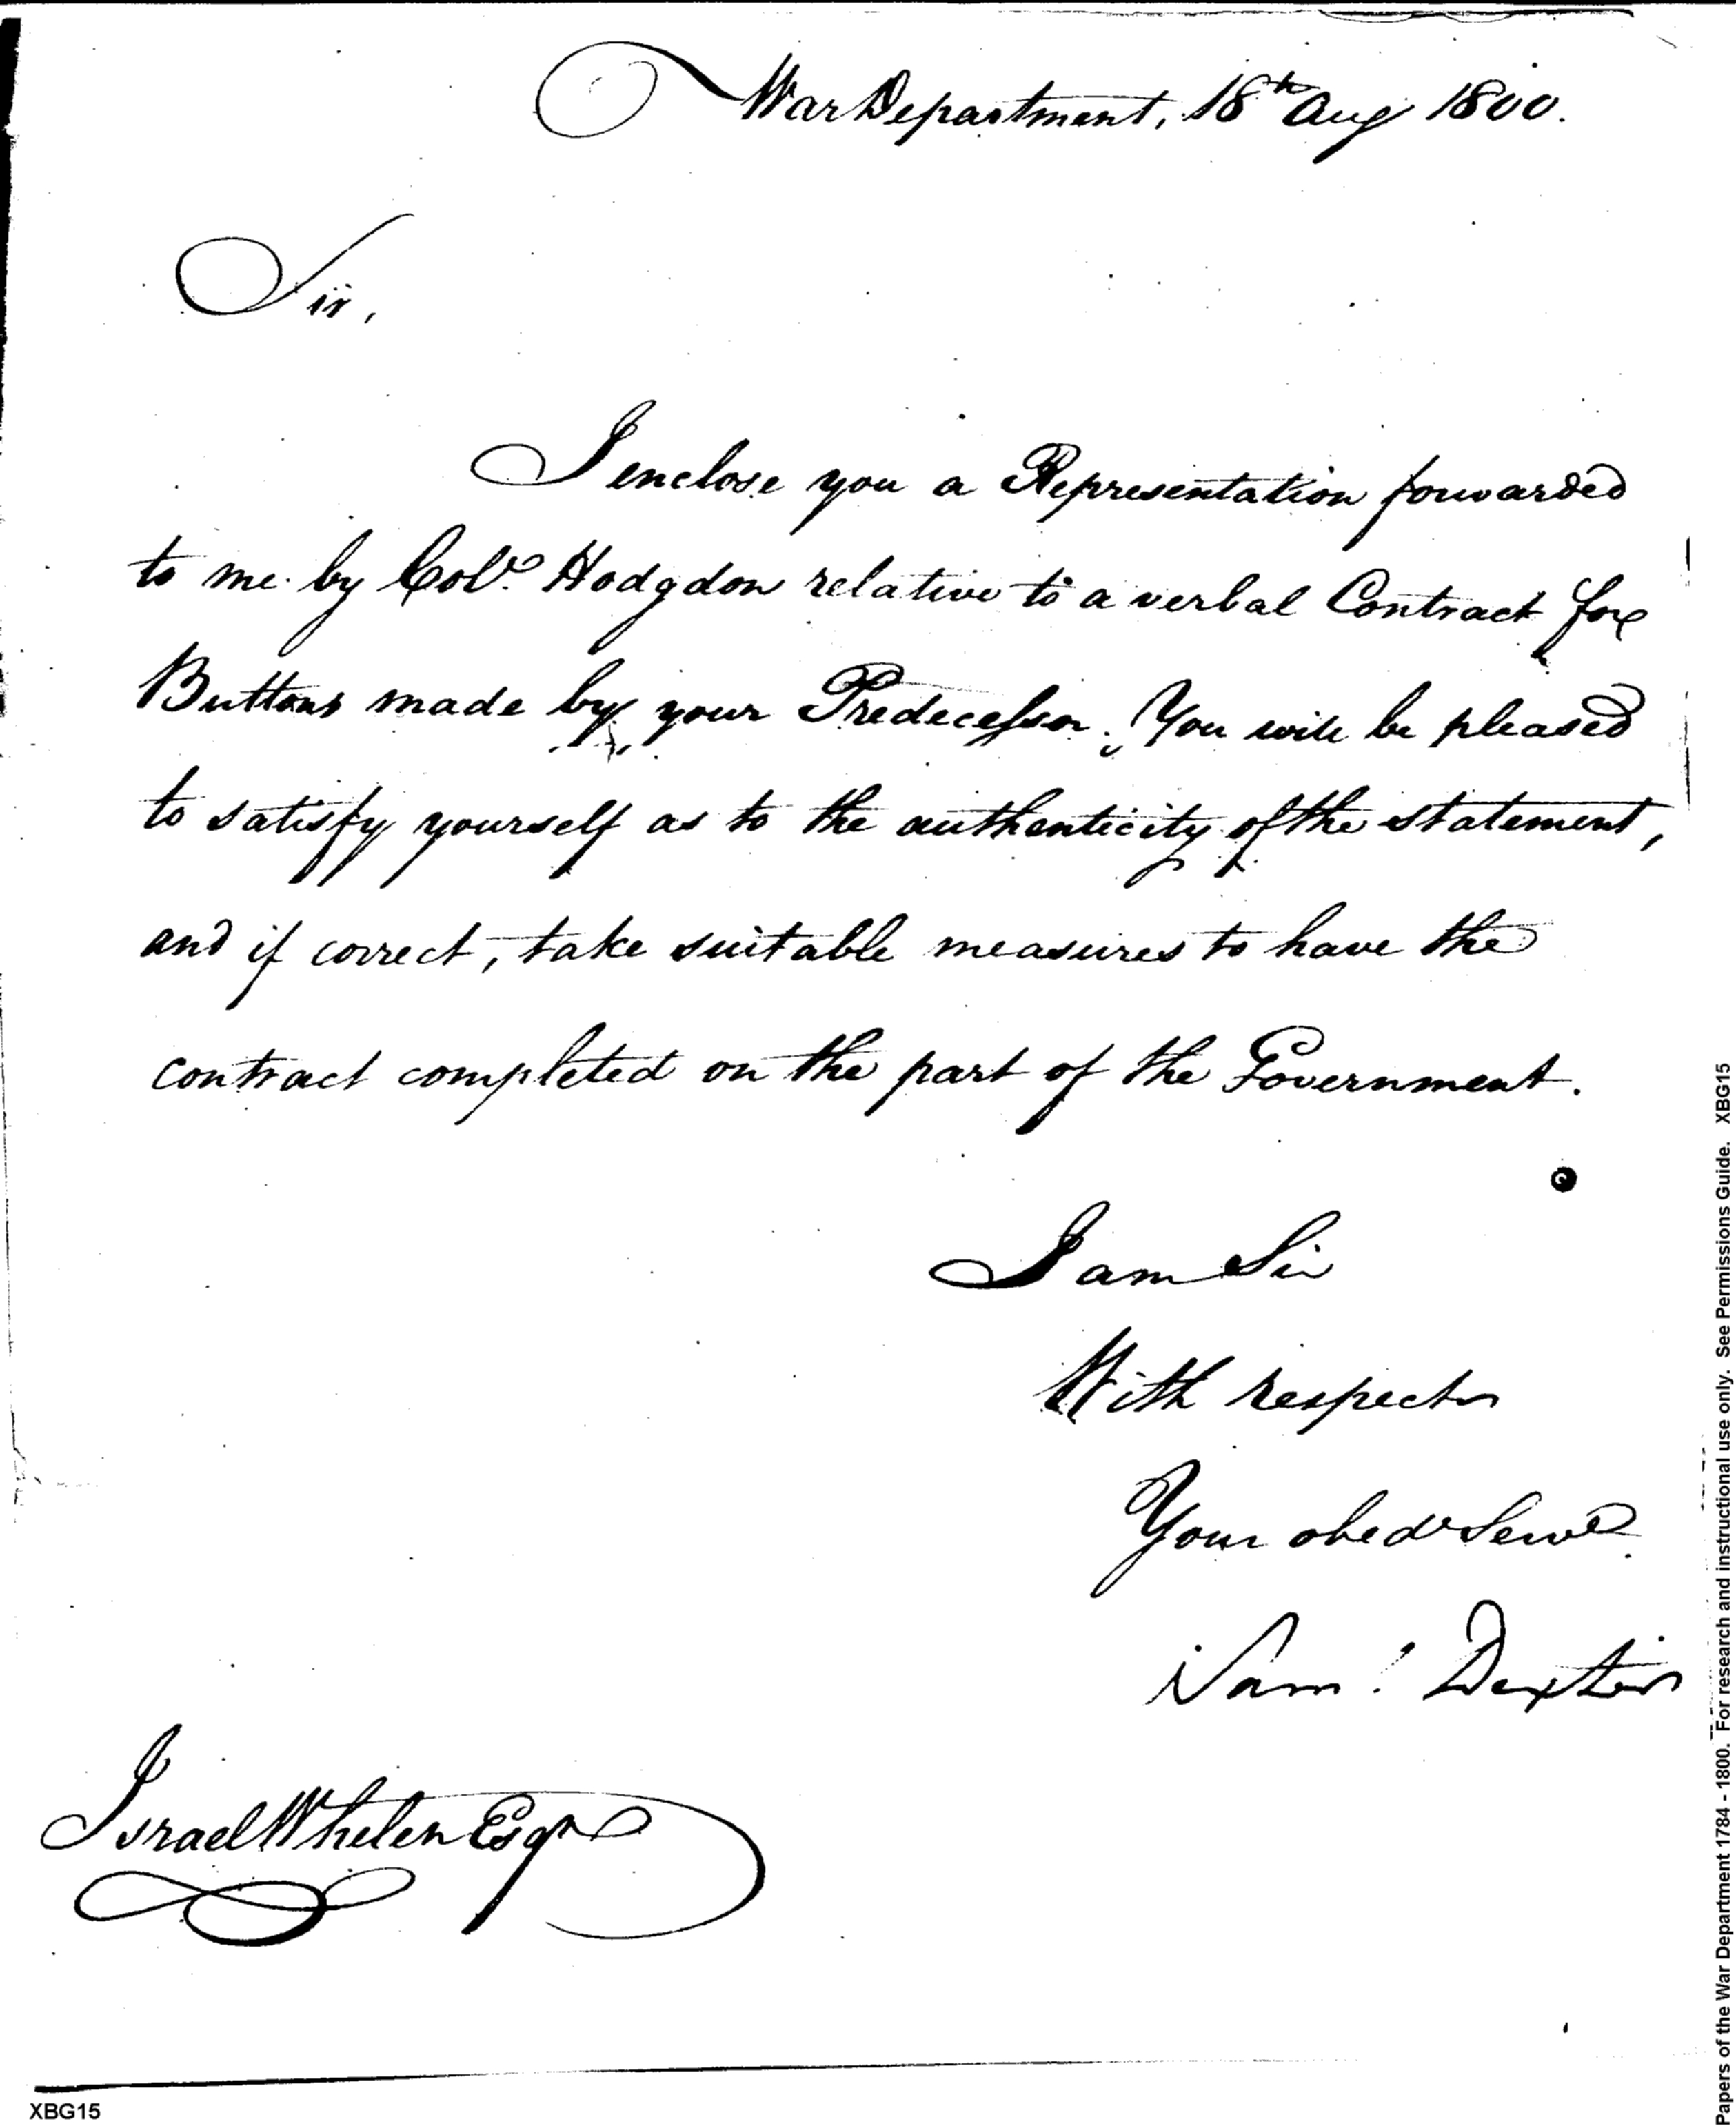 War Department, 18th Aug 1800.
Sir,
I enclose you a Representation forwarded
to me by Colo. Hodgdon relative to a verbal Contract for
Buttons made by your Predecessor. You will be pleased
to satisfy yourself as to the authenticity of the statement,
and if correct, take suitable measures to have the
contract completed on the part of the Government.
I am Sir
With respect
Your obedt Servt.
Saml. Dexter
Israel Whelen Esqr
XBG15
Papers of the War Department 1784 - 1800. For research and instructional use only. See Permissions Guide. XBG15